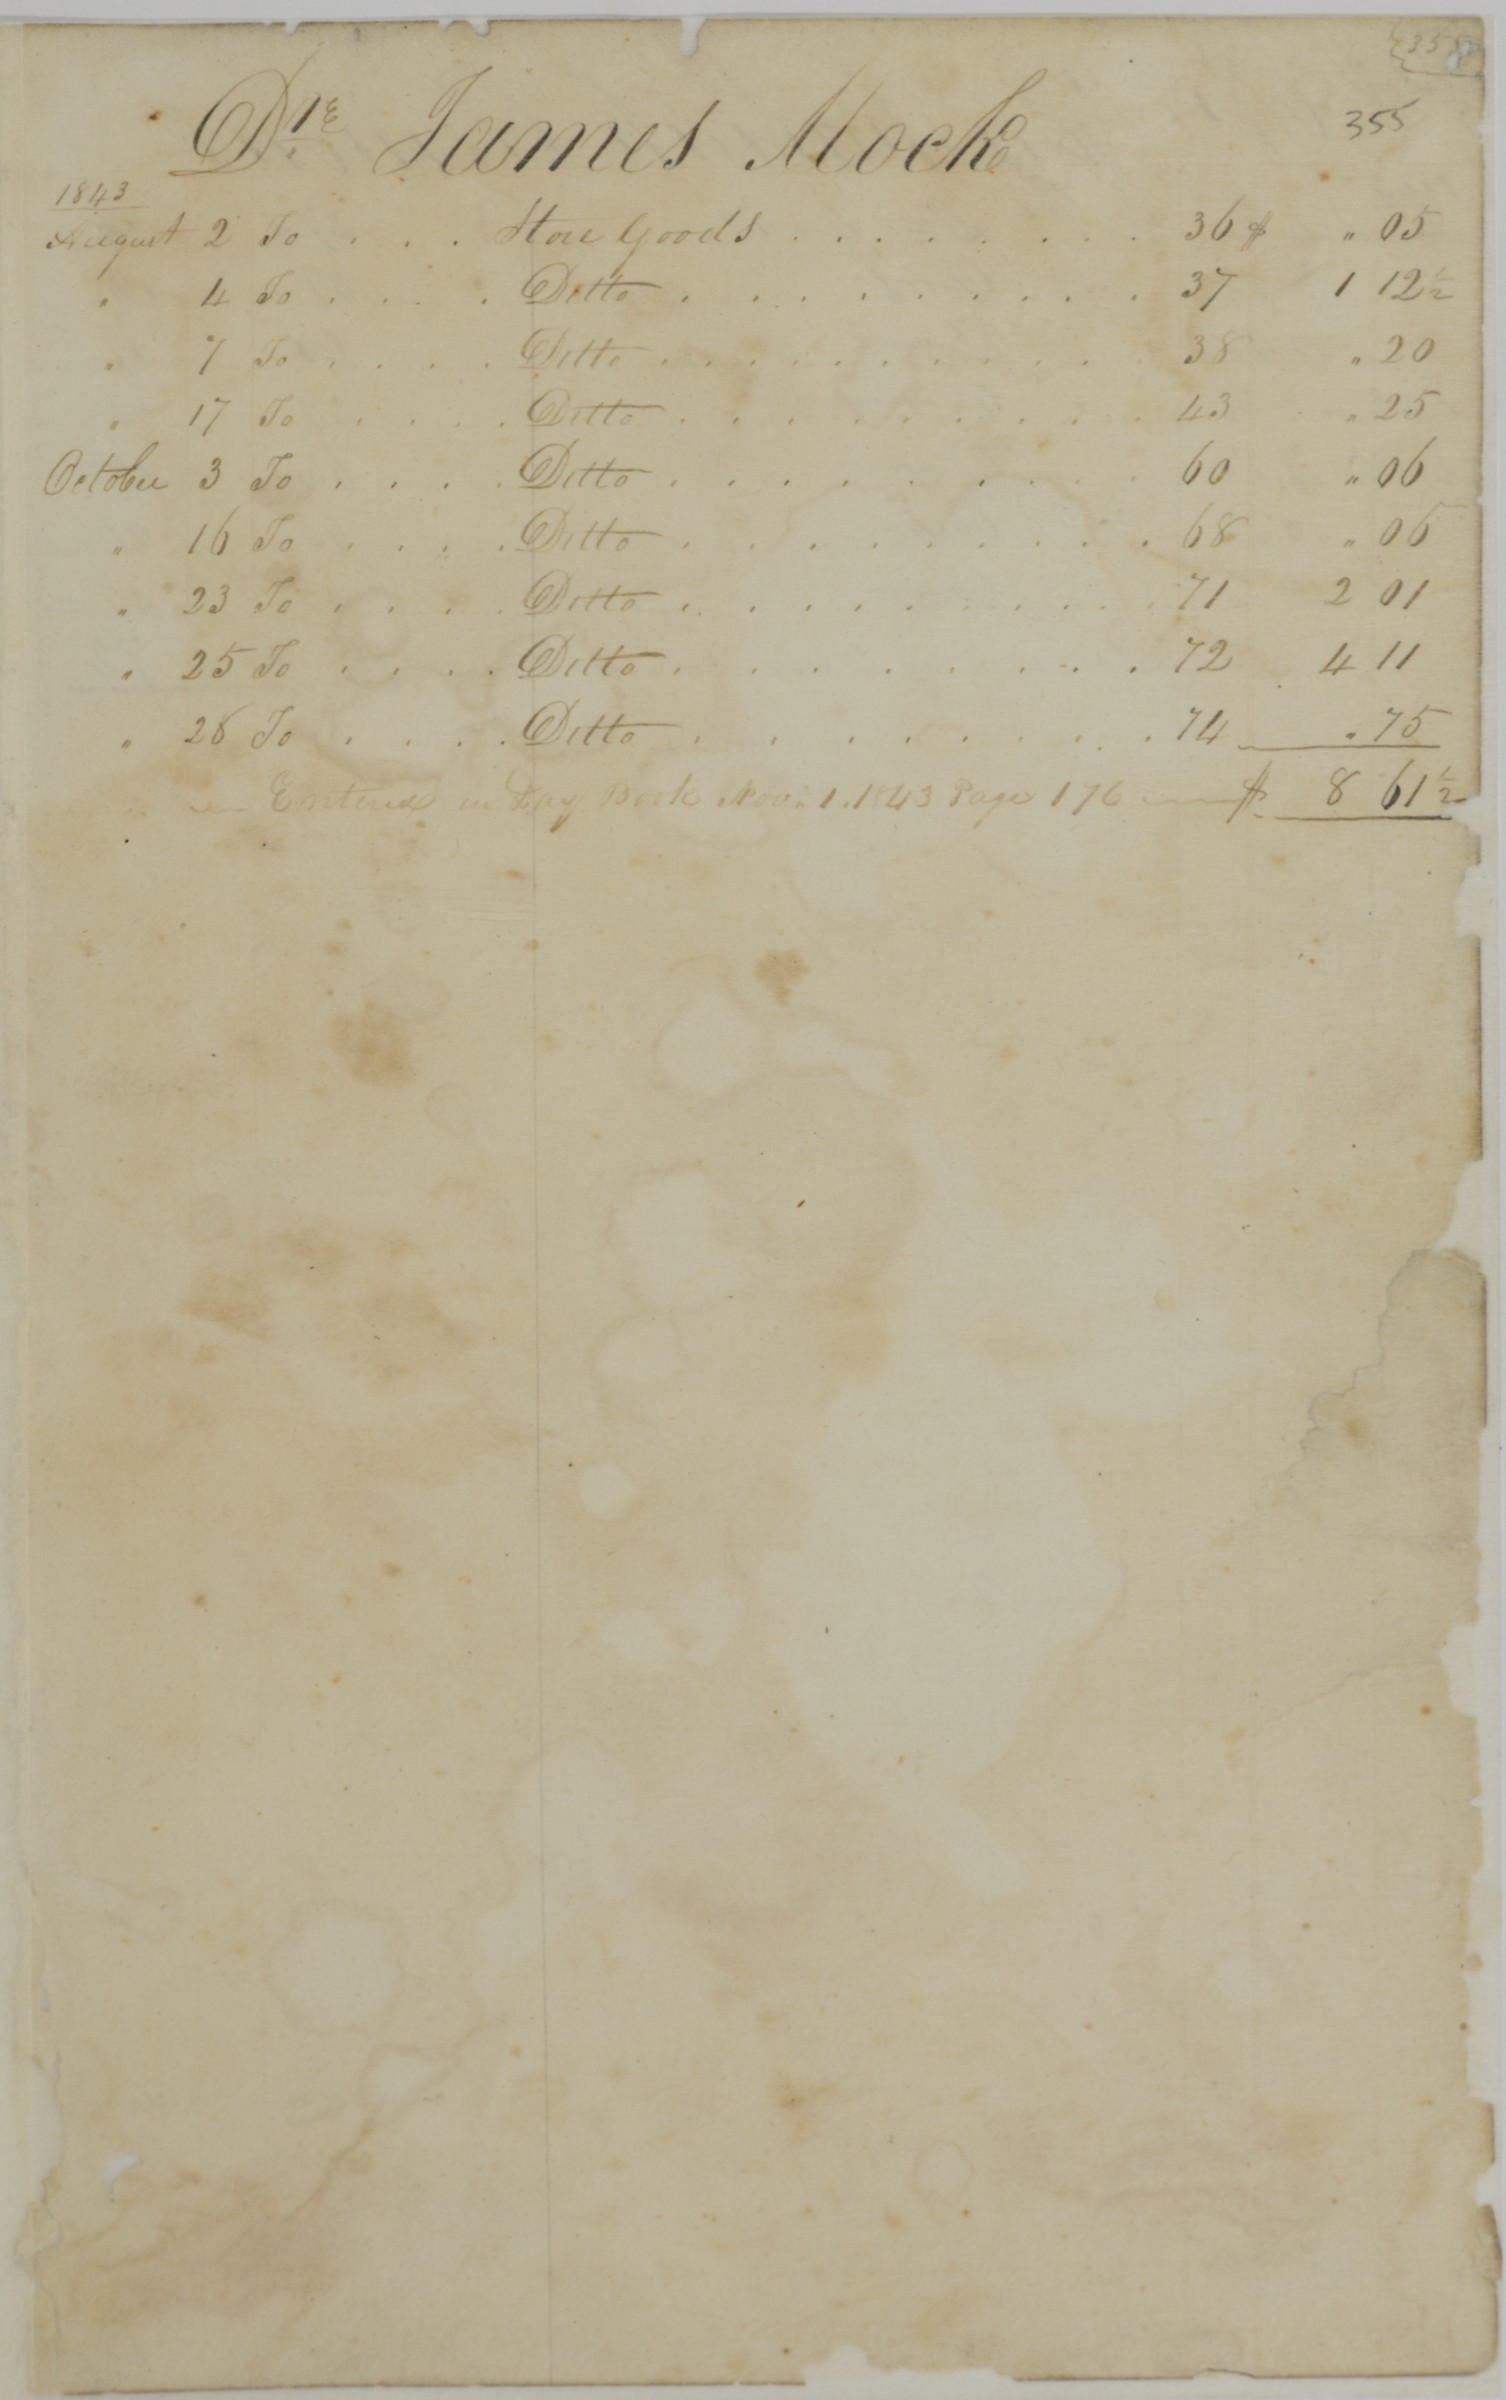 355
Dr. James Mock 355
1843
August 2 To . . . Store Goods . . . . . . . . . 36 $ " 05
" 4 To . . . . Ditto . . . . . . . . . . 37 1 12½
" 7 To . . . . Ditto . . . . . . . . . . 38 " 20
" 17 To . . . . Ditto . . . . . . . . . . 43 " 25
October 3 To . . . . Ditto . . . . . . . . . . 60 " 06
" 16 To . . . . Ditto . . . . . . . . . . 68 " 06
" 23 To . . . . Ditto . . . . . . . . . . 71 2 01
" 25 To . . . . Ditto . . . . . . . . . . 72 4 11
" 28 To . . . . Ditto . . . . . . . . . . 74 " 75
Entered in Day Book Nov. 1. 1843 Page 176 $ 8 61½